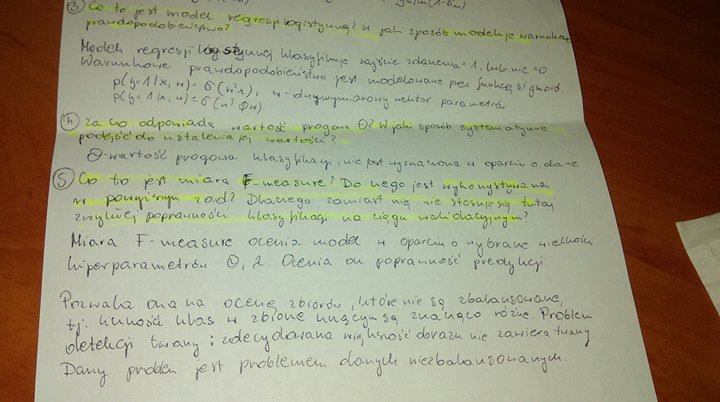 ③ Co to jest model regresji logistycznej? W jaki sposób modeluje warunkowe
prawdopodobieństwo?
Model regresji logistycznej klasyfikuje zajście zdarzenia = 1, lub nie = 0
Warunkowe prawdopodobieństwo jest modelowane przez funkcję sigmoid.
p(y=1|x,w) = σ(wᵀx), w - dwywymiarowy wektor parametrów
p(y=1|x,w) = σ(wᵀΦw)
④ Za co odpowiada wartość progowa θ? W jaki sposób systematycznie
podejść do ustalenia jej wartości?
θ - wartość progowa klasyfikacji, nie jest wyznaczona w oparciu o dane
⑤ Co to jest miara F-measure? Do czego jest wykorzystywana
w powyższym zad? Dlaczego zamiast niej nie stosuje się tutaj
zwykłej poprawności klasyfikacji na ciągu walidacyjnym?
Miara F-measure ocenia model w oparciu o wybrane wielkości
hiperparametrów θ, λ. Ocenia on poprawność predykcji
Pozwala ona na ocenę zbiorów, które nie są zbalansowane,
tj. liczność klas w zbiorze uczącym są znacząco różne. Problem
detekcji twarzy: zdecydowana większość obrazu nie zawiera twarzy.
Dany problem jest problemem danych niezbalansowanych.